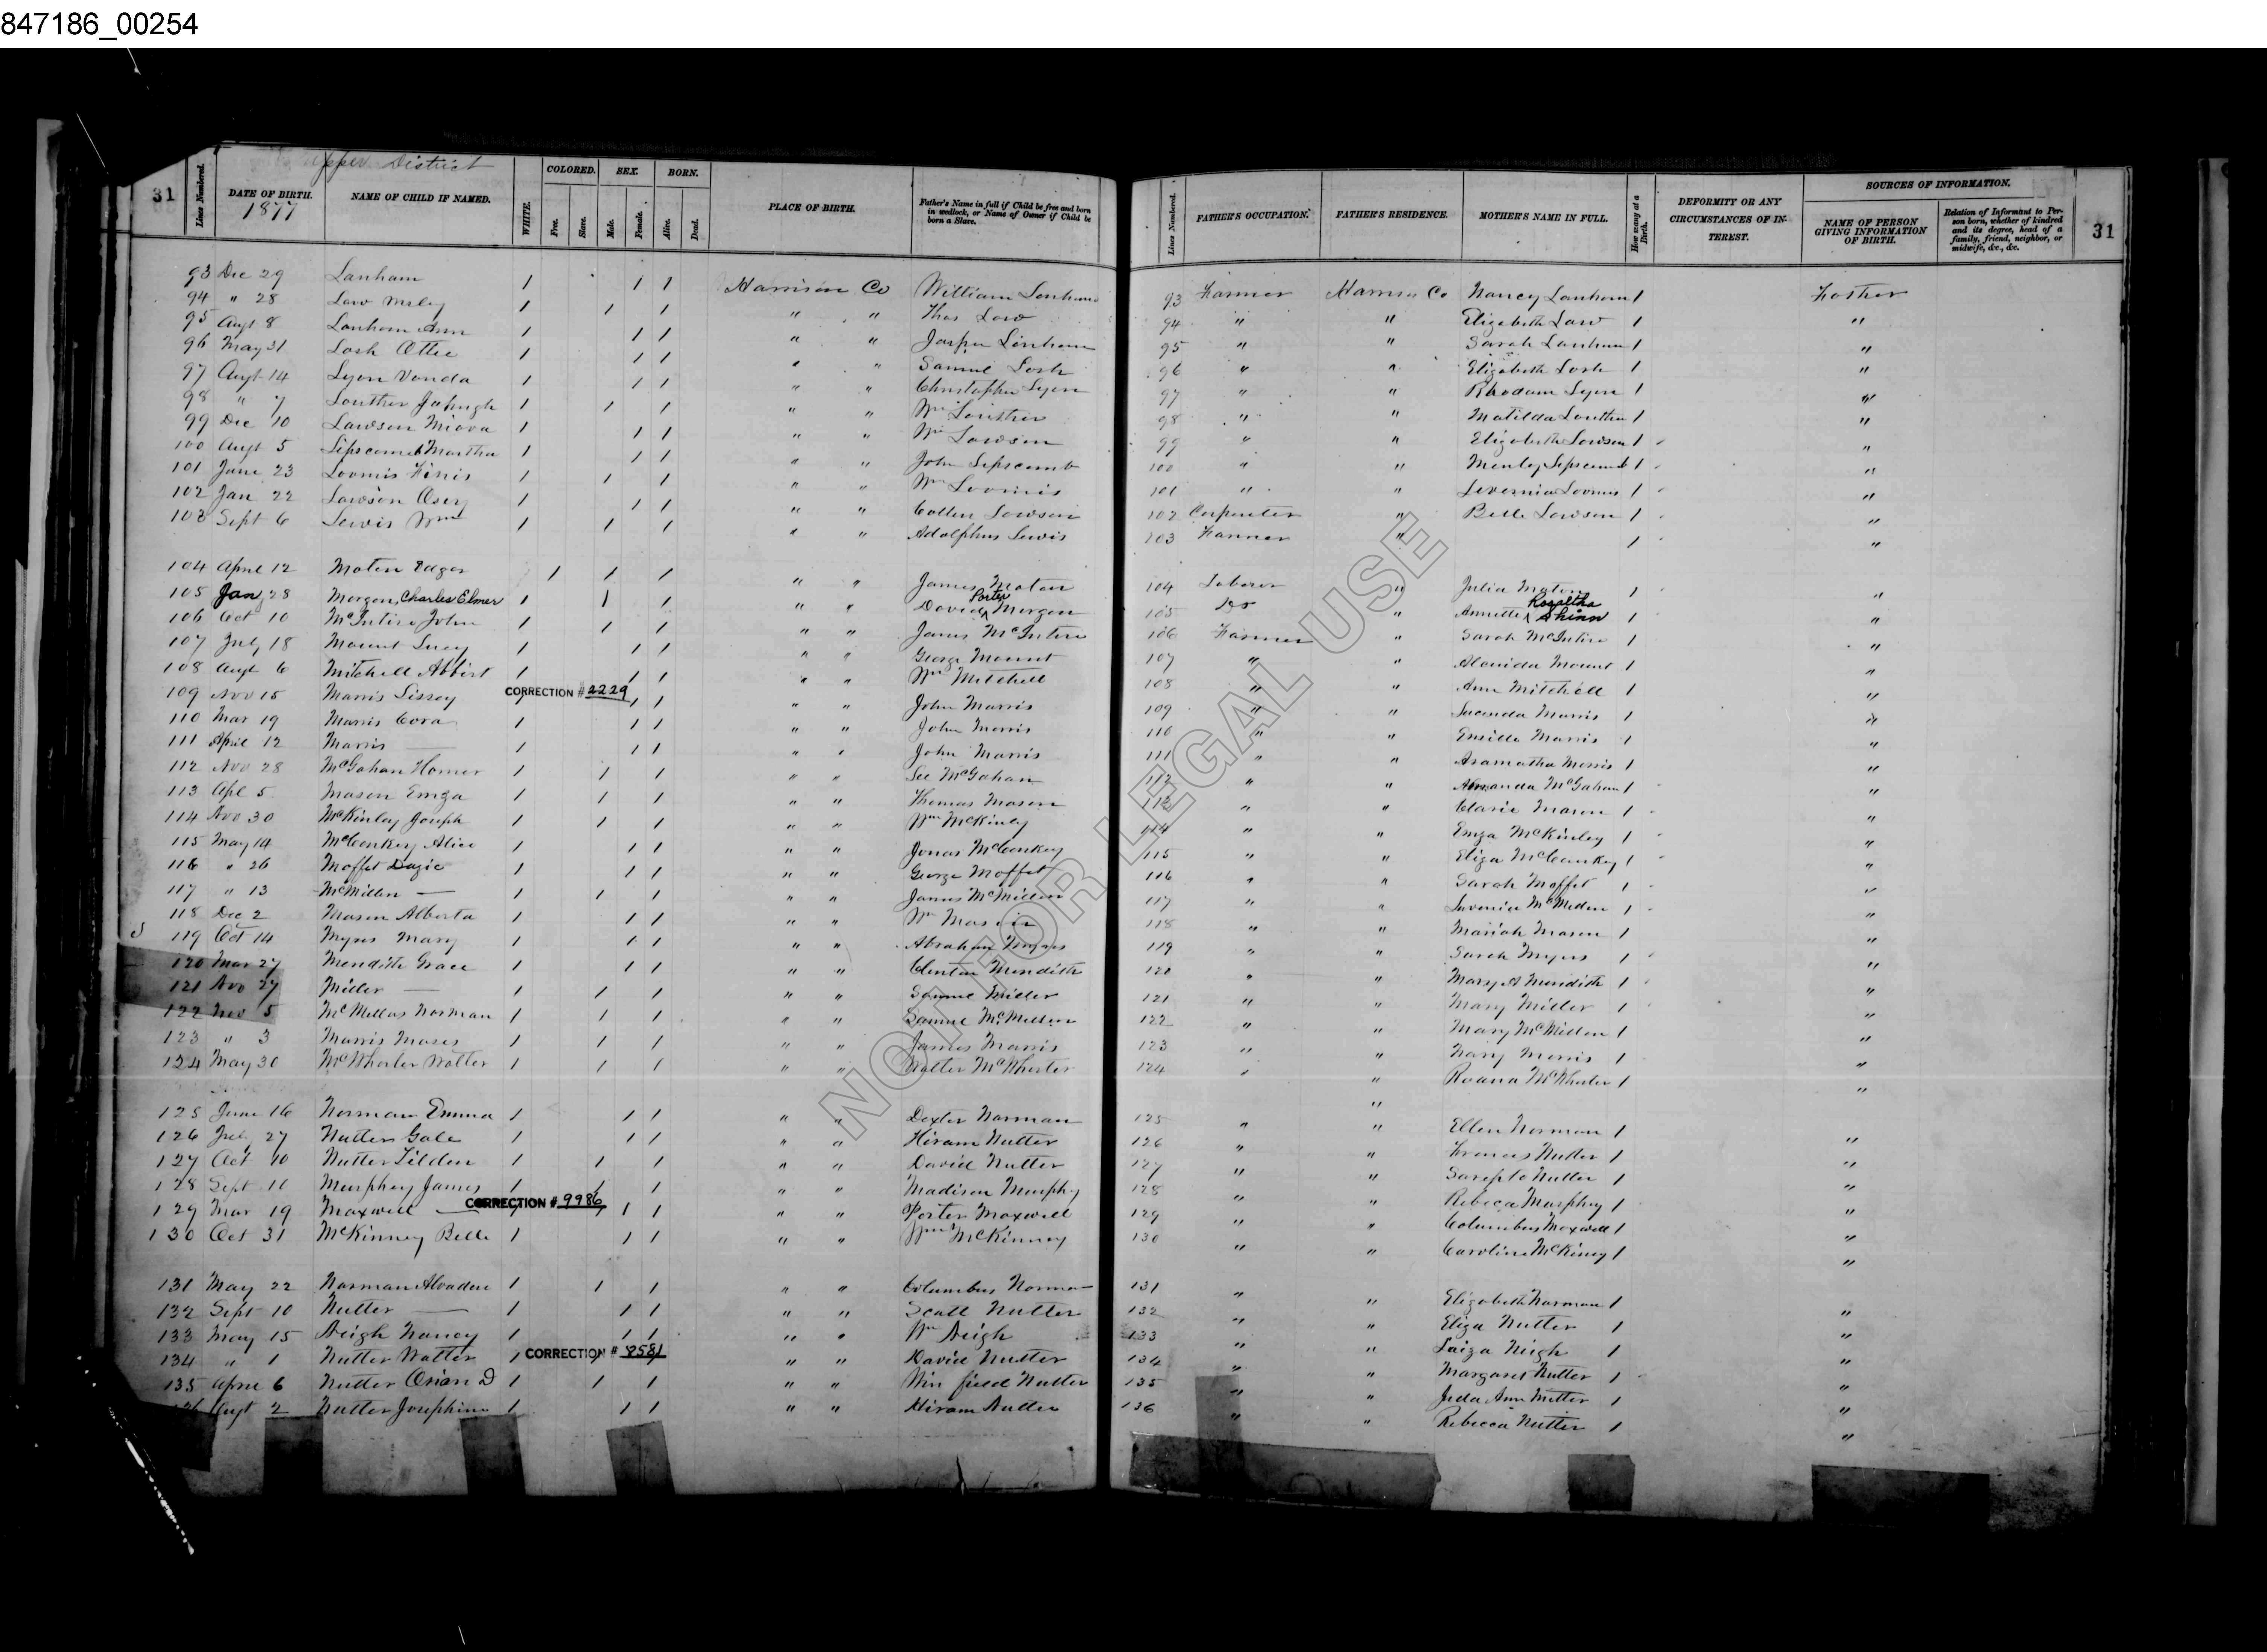 847186_00254
Upper District
31 Lines Numbered. DATE OF BIRTH. 1877 NAME OF CHILD IF NAMED. WHITE. COLORED. Free. Slave. SEX. Male. Female. BORN. Alive. Dead. PLACE OF BIRTH. Father's Name in full if Child be free and born in wedlock, or Name of Owner if Child be born a Slave. Lines Numbered. FATHER'S OCCUPATION. FATHER'S RESIDENCE. MOTHER'S NAME IN FULL. How many at a Birth. DEFORMITY OR ANY CIRCUMSTANCES OF INTEREST. SOURCES OF INFORMATION. NAME OF PERSON GIVING INFORMATION OF BIRTH. Relation of Informant to Person born, whether of kindred and its degree, head of a family, friend, neighbor, or midwife, &c., &c. 31
93 Dec 29 Lanham 1 1 1 Harrison Co William Lanham 93 Farmer Harrison Co Nancy Lanham 1 Father
94 " 28 Law 1 1 1 " " Thos Law 94 " " Elizabeth Law 1 "
95 Augt 8 Lanham Ann 1 1 1 " " Jasper Lanham 95 " " Sarah Lanham 1 "
96 May 31 Losh Ottie 1 1 1 " " Samuel Losh 96 " " Elizabeth Losh 1 "
97 Augt 14 Lyon Vonda 1 1 1 " " Christopher Lyon 97 " " Rhodam Lyon 1 "
98 " 7 Louther 1 1 1 " " Wm Louther 98 " " Matilda Louther 1 "
99 Dec 10 Lawson 1 1 1 " " Wm Lawson 99 " " Elizabeth Lawson 1 "
100 Augt 5 Lipscomb Martha 1 1 1 " " John Lipscomb 100 " " Lipscomb 1 "
101 June 23 Loomis 1 1 1 " " Wm Loomis 101 " " Loomis 1 "
102 Jan 22 Lawson 1 1 1 " " Lawson 102 Carpenter " Belle Lawson 1 "
103 Sept 6 Lewis Wm 1 1 1 " " Adolphus Lewis 103 Farmer " 1 "
104 April 12 Moten Edgar 1 1 1 " " James Moton 104 Laborer " Julia Moton 1 "
105 Jan 28 Morgan, Charles Elmer 1 1 1 " " David Porter Morgan 105 Do " Annetta Rosaltha Shinn 1 "
106 Oct 10 McIntire John 1 1 1 " " James McIntire 106 Farmer " Sarah McIntire 1 "
107 July 18 Mount Lucy 1 1 1 " " George Mount 107 " " Mount 1 "
108 Augt 6 Mitchell 1 1 1 " " Wm Mitchell 108 " " Ann Mitchell 1 "
109 Nov 15 Morris Lissey 1 CORRECTION # 2229 1 1 " " John Morris 109 " " Lucinda Morris 1 "
110 Mar 19 Morris Cora 1 1 1 " " John Morris 110 " " Morris 1 "
111 April 12 Morris — 1 1 1 " " John Morris 111 " " Aramatha Morris 1 "
112 Nov 28 McGahan Homer 1 1 1 " " Lee McGahan 112 " " Amanda McGahan 1 "
113 Apl 5 Mason Emza 1 1 1 " " Thomas Mason 113 " " Mason 1 "
114 Nov 30 McKinley Joseph 1 1 1 " " Wm McKinley 114 " " Emza McKinley 1 "
115 May 14 McConkey Alice 1 1 1 " " Jonas McConkey 115 " " Eliza McConkey 1 "
116 " 26 Moffet Dazie 1 1 1 " " George Moffet 116 " " Sarah Moffet 1 "
117 " 13 McMillen — 1 1 1 " " James McMillen 117 " " 1 "
118 Dec 2 Mason Alberta 1 1 1 " " Wm Mason 118 " " Mariah Mason 1 "
119 Oct 14 Myers Mary 1 1 1 " " Abraham Myers 119 " " Sarah Myers 1 "
120 Mar 27 Meredith Grace 1 1 1 " " Clinton Meredith 120 " " Mary A Meredith 1 "
121 Nov 27 Miller — 1 1 1 " " Samuel Miller 121 " " Mary Miller 1 "
122 Nov 5 Norman 1 1 1 " " Samuel McMillen 122 " " Mary McMillen 1 "
123 " 3 Morris Moses 1 1 1 " " James Morris 123 " " Morris 1 "
124 May 30 McWhorter Walter 1 1 1 " " Walter McWhorter 124 " " Roana McWhorter 1 "
125 June 16 Norman Emma 1 1 1 " " Dexter Norman 125 " " Ellen Norman 1 "
126 July 27 Nutter Gale 1 1 1 " " Hiram Nutter 126 " " Frances Nutter 1 "
127 Oct 10 Nutter Tilden 1 1 1 " " David Nutter 127 " " Sarepta Nutter 1 "
128 Sept 11 Murphey James 1 1 1 " " Madison Murphy 128 " " Rebeca Murphey 1 "
129 Mar 19 Maxwell — CORRECTION # 9986 1 1 " " Porter Maxwell 129 " " Columbus Maxwell 1 "
130 Oct 31 McKinney Belle 1 1 1 " " Wm McKinney 130 " " Caroline McKiney 1 "
131 May 22 Norman Alvadore 1 1 1 " " Columbus Norman 131 " " Elizabeth Norman 1 "
132 Sept 10 Nutter — 1 1 1 " " Scott Nutter 132 " " Eliza Nutter 1 "
133 May 15 Neigh Nancy 1 1 1 " " Wm Neigh 133 " " Luiza Neigh 1 "
134 " 1 Nutter Walter 1 CORRECTION # 8581 " " David Nutter 134 " " Margaret Nutter 1 "
135 April 6 Nutter Orion D 1 1 1 " " Win field Nutter 135 " " Juda Ann Nutter 1 "
136 Augt 2 Nutter Josephine 1 1 1 " " Hiram Nutter 136 " " Rebecca Nutter 1 "
NOT FOR LEGAL USE